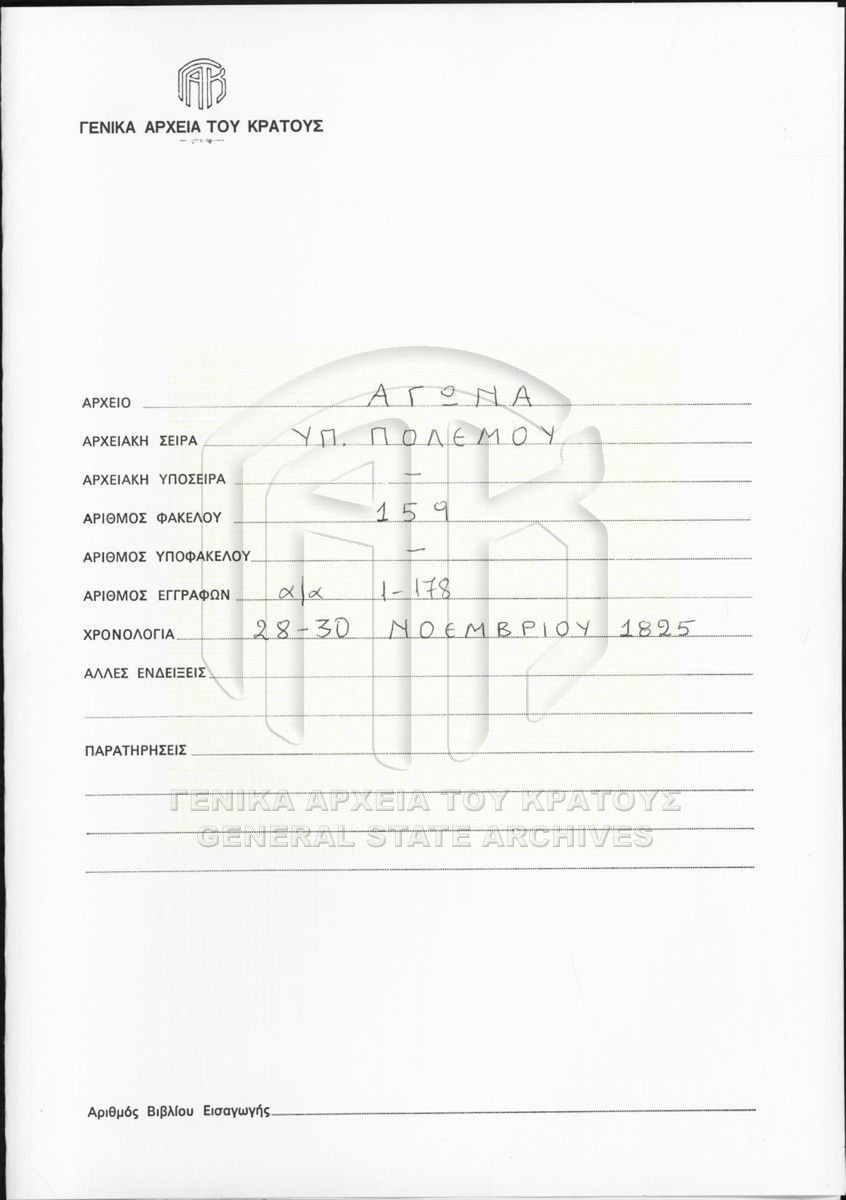 ΓΑΚ
ΓΕΝΙΚΑ ΑΡΧΕΙΑ ΤΟΥ ΚΡΑΤΟΥΣ
ΑΡΧΕΙΟ ΑΓΩΝΑ
ΑΡΧΕΙΑΚΗ ΣΕΙΡΑ ΥΠ. ΠΟΛΕΜΟΥ
ΑΡΧΕΙΑΚΗ ΥΠΟΣΕΙΡΑ —
ΑΡΙΘΜΟΣ ΦΑΚΕΛΟΥ 159
ΑΡΙΘΜΟΣ ΥΠΟΦΑΚΕΛΟΥ —
ΑΡΙΘΜΟΣ ΕΓΓΡΑΦΩΝ α/α 1-178
ΧΡΟΝΟΛΟΓΙΑ 28-30 ΝΟΕΜΒΡΙΟΥ 1825
ΑΛΛΕΣ ΕΝΔΕΙΞΕΙΣ
ΠΑΡΑΤΗΡΗΣΕΙΣ
ΓΕΝΙΚΑ ΑΡΧΕΙΑ ΤΟΥ ΚΡΑΤΟΥΣ
GENERAL STATE ARCHIVES
Αριθμός Βιβλίου Εισαγωγής